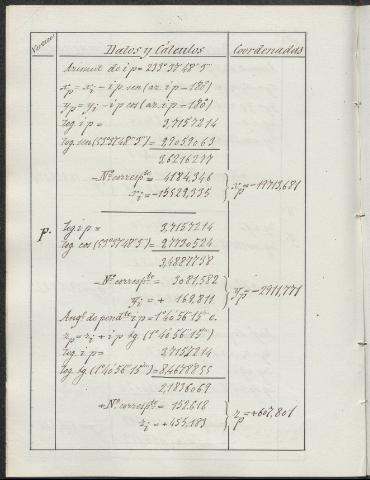 Vertices Datos y Cálculos Coordenadas
Azimut de i p = 233° 37' 48" 5'''
x_p = x_i - i p. sen (az. i p - 180°)
y_p = y_i - i p cos (az. i p - 180°)
log. i p = 3,7157214
log. sen (53° 37' 48" 5''') = 9,9059063
3,6216277
- Nº. correspte. = 4184,346
x_i = -15529,335
x_p = -19713,681
p.
Log i p = 3,7157214
log cos (53° 37' 48" 5''') = 9,7730524
3,4887738
- Nº. correspte. = 3081,582
y_i = + 169,811
y_p = -2911,771
Angº de pendte i p = 1° 40' 56" 15''' e.
z_p = z_i + i p tg. (1° 40' 56" 15''')
log. i p = 3,7157214
log. tg. (1° 40' 56" 15''') = 8,4678855
2,1836069
+ Nº. correspte. = 152,618
z_i = +455,183
z_p = +607,801